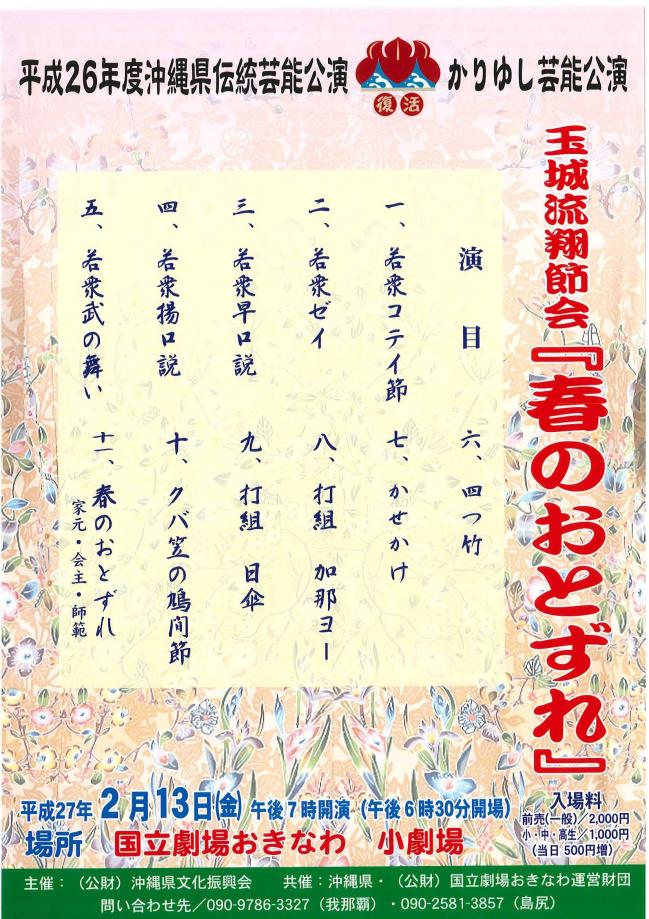 平成26年度沖縄県伝統芸能公演
復活
かりゆし芸能公演
玉城流翔節会『春のおとずれ』
演目
一、若衆コテイ節
二、若衆ゼイ
三、若衆早口説
四、若衆揚口説
五、若衆武の舞い
六、四つ竹
七、かせかけ
八、打組 加那ヨー
九、打組 日傘
十、クバ笠の鳩間節
十一、春のおとずれ
家元・会主・師範
平成27年2月13日(金)午後7時開演(午後6時30分開場)
場所 国立劇場おきなわ 小劇場
入場料
前売(一般)/2,000円
小・中・高生/1,000円
(当日500円増)
主催:(公財)沖縄県文化振興会 共催:沖縄県・(公財)国立劇場おきなわ運営財団
問い合わせ先/090-9786-3327(我那覇)・090-2581-3857(島尻)